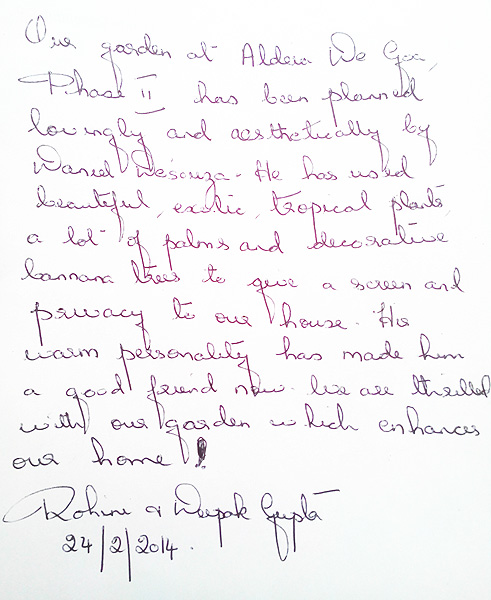 Our garden at Aldeia De Goa,
Phase II has been planned
lovingly and aesthetically by
Daniel Desouza. He has used
beautiful, exotic, tropical plants,
a lot of palms and decorative
bannana trees to give a screen and
privacy to our house. His
warm personality has made him
a good friend now. We are thrilled
with our garden which enhances
our home!
Rohini & Deepak Gupta
24/2/2014.